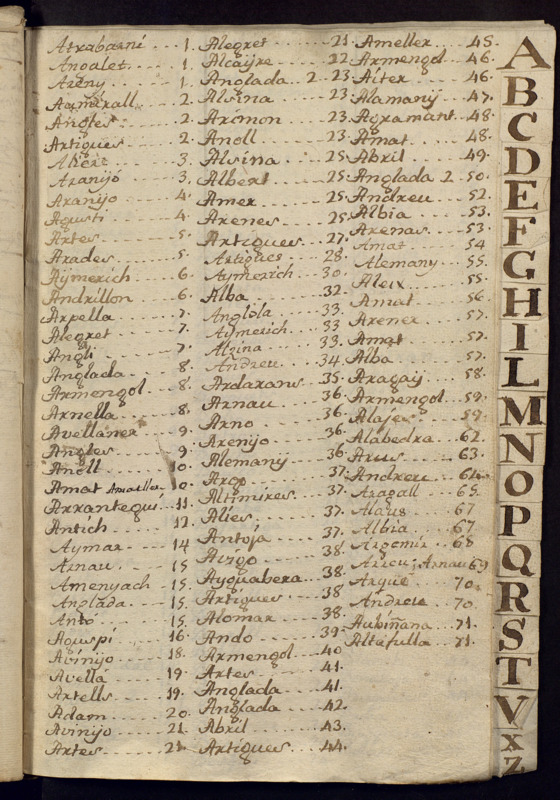 Atxabarní 1.
Anoalet. 1.
Areny 1
Aymerall. 2.
Angles 2.
Artigues 2.
Alberic 3.
Aranyó 3.
Aranyó 4.
Agustí 4.
Artes 5.
Arades 5.
Aÿmerich 6.
Andrillon 6.
Arpella 7.
Alegret 7.
Anglí 7.
Anglada 8.
Armengol 8.
Arnella 8.
Avellaner 9.
Angles 9.
Anoll 10.
Amat Amatller 10.
Arrantegui 11.
Antich 12.
Aymar 14
Arnau 15
Amenyach 15
Anglada 15.
Antó 15.
Aguspí 16.
Avinÿo 18.
Avellá 19.
Artells 19.
Adam 20.
Avinÿo 21.
Artes 21.
Alegret 21.
Alcayre 22
Anglada 2 23
Alsina 23
Armon 23.
Anoll 23.
Alsina 25
Albert 25.
Amer 25.
Arenes 25
Artigues 27.
Artigues 28.
Aymerich 30.
Alba 32
Anglóla 33.
Aymerich 33
Alzina 33.
Andreu 34
Ardaxans 35.
Arnau 36
Arno 36.
Arenÿo 36.
Alemany 36
Arop 37
Altimires 37.
Alies 37.
Antojá 37.
Arigo 38.
Ayguabera 38.
Artigues 38
Alomar 38.
Ando 39.
Armengol 40
Artes 41.
Anglada 41.
Anglada 42.
Abril 43.
Artigues 44.
Ameller 45.
Armengol 46.
Aiter 46.
Alamanÿ 47.
Agramant 48.
Amat 48.
Abril 49.
Anglada 2 50.
Andreu 52.
Albia 53.
Arenas 53.
Amat 54
Alemany 55.
Aleix 55.
Amat 56
Arener 57.
Amat 57.
Alba 57.
Aragaÿ 58.
Armengol 59.
Alajes 59.
Alabedra 62.
Arus 63.
Andreu 64.
Aragall 65.
Alaus 67
Albia 67
Argomir 68
Arrou; Arnau 69
Argué 70.
Andreu 70.
Aubiñana 71.
Altafulla 71.
A
B
C
D
E
F
G
H
I
L
M
N
O
P
Q
R
S
T
V
X
Z